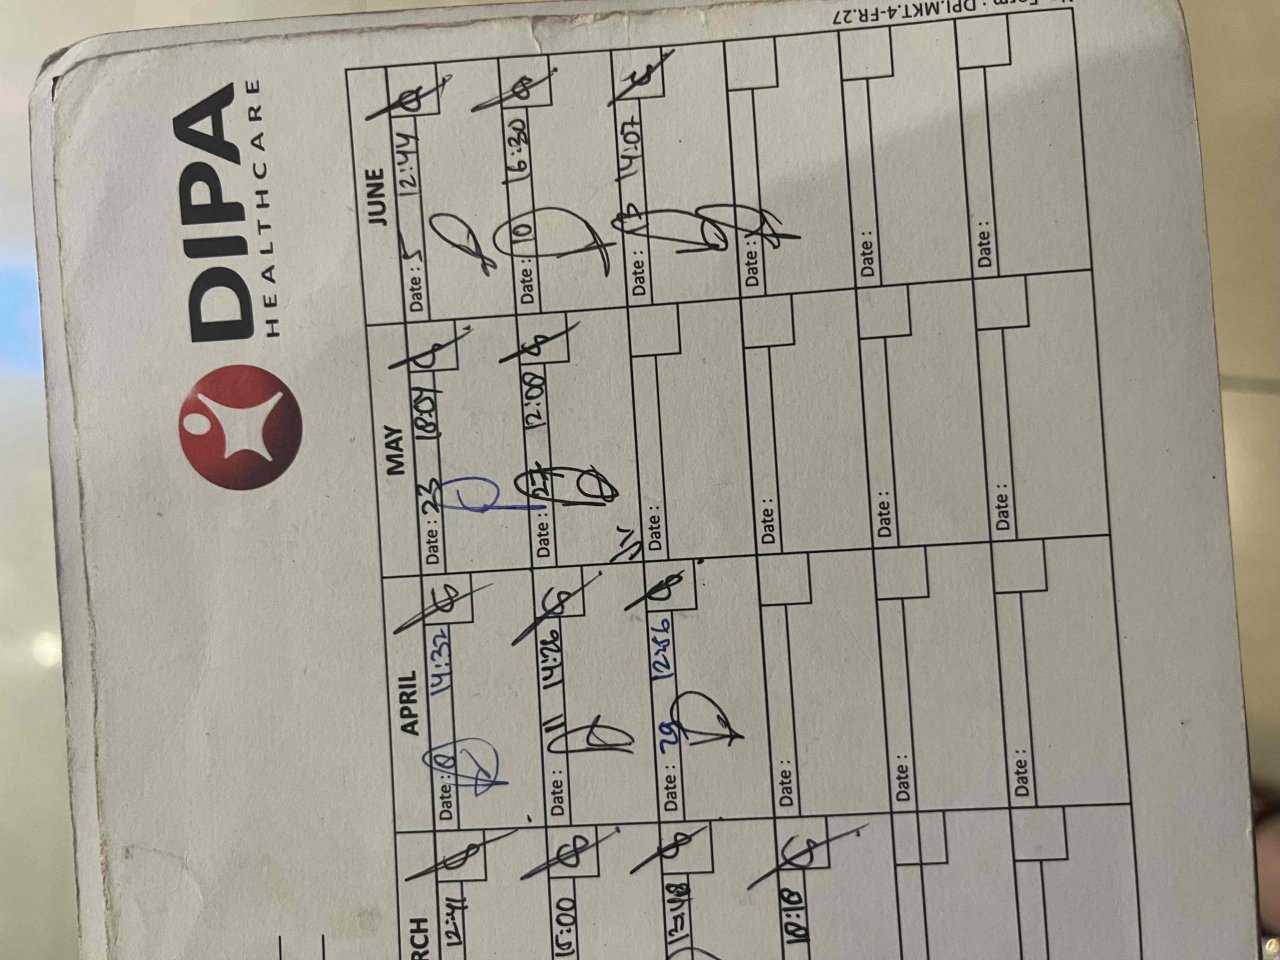 DIPA
HEALTHCARE
RCH
12:41
15:00
13:48
10:18
APRIL
Date : 8 14:32
Date : 11 14:26
Date : 29 12:56
Date :
Date :
Date :
MAY
Date : 23 18:04
Date : 27 12:08
Date :
Date :
Date :
Date :
JUNE
Date : 5 12:44
Date : 10 16:30
Date : 13 14:07
Date :
Date :
Date :
Form : DPI.MKT.4-FR.27